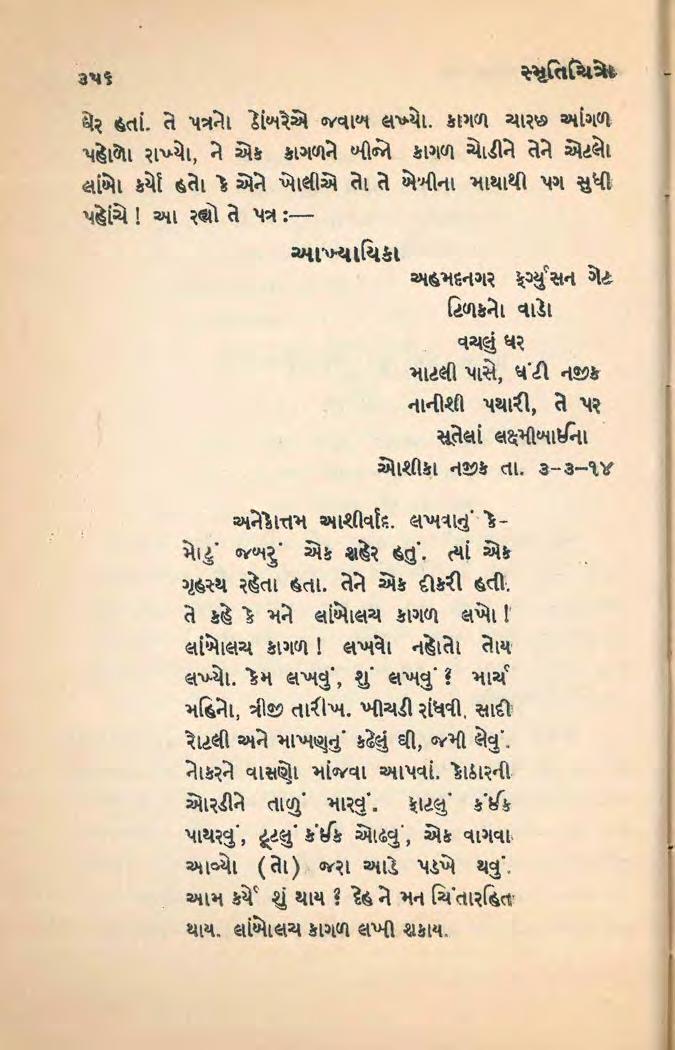 ૩૫૬ સ્મૃતિચિત્રો
ઘેર હતાં. તે પત્રનો ઠોંબરેએ જવાબ લખ્યો. કાગળ ચારછ આંગળ
પહોળો રાખ્યો, ને એક કાગળને બીજો કાગળ ચોડીને તેને એટલો
લાંબો કર્યો હતો કે એને ખોલીએ તો તે બેબીના માથાથી પગ સુધી
પહોંચે ! આ રહ્યો તે પત્ર :—
આખ્યાયિકા
અહમદનગર ફર્ગ્યુસન ગેટ
ટિળકનો વાડો
વચલું ઘર
માટલી પાસે, ઘંટી નજીક
નાનીશી પથારી, તે પર
સૂતેલાં લક્ષ્મીબાઈના
ઓશીકા નજીક તા. ૩-૩-૧૪
અનેકોત્તમ આશીર્વાદ. લખવાનું કે-
મોટું જબરું એક શહેર હતું. ત્યાં એક
ગૃહસ્થ રહેતા હતા. તેને એક દીકરી હતી.
તે કહે કે મને લાંબોલચ કાગળ લખો !
લાંબોલચ કાગળ ! લખવો નહોતો તોય
લખ્યો. કેમ લખવું, શું લખવું ? માર્ચ
મહિનો, ત્રીજી તારીખ. ખીચડી રાંધવી, સાદી
રોટલી અને માખણનું કઢેલું ઘી, જમી લેવું.
નોકરને વાસણો માંજવા આપવાં. કોઠારની
ઓરડીને તાળું મારવું. ફાટલું કંઈક
પાથરવું, ટૂટલું કંઈક ઓઢવું, એક વાગવા
આવ્યો (તો) જરા આડે પડખે થવું.
આમ કર્યે શું થાય ? દેહ ને મન ચિંતારહિત
થાય. લાંબોલચ કાગળ લખી શકાય.